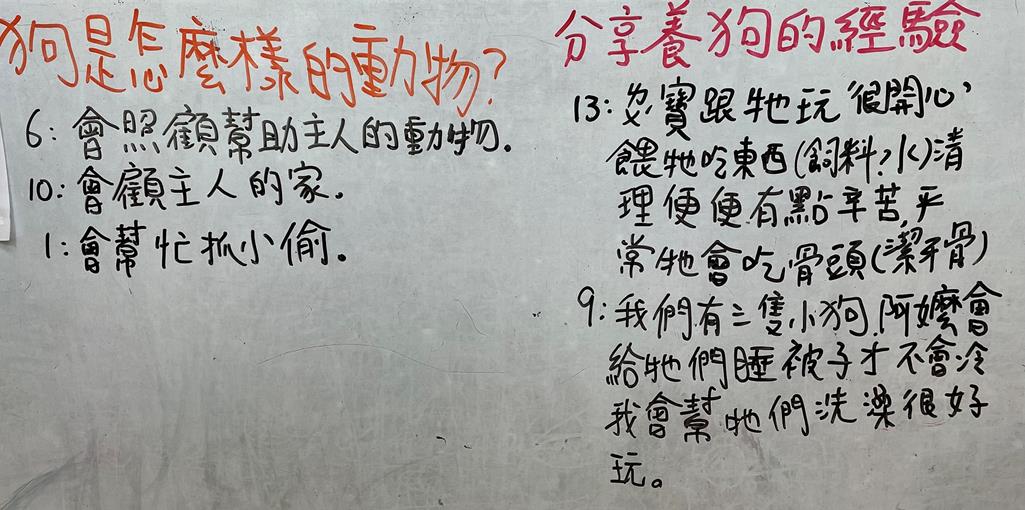 狗是怎麼樣的動物?
6：會照顧幫助主人的動物.
10：會顧主人的家.
1：會幫忙抓小偷.
分享養狗的經驗
13：多寶跟牠玩"很開心,
餵牠吃東西(飼料?水)清
理便便有點辛苦,平
常牠會吃骨頭(潔牙骨)
9：我們有二隻小狗,阿嬤會
給牠們睡被子才不會冷
我會幫牠們洗澡很好
玩。